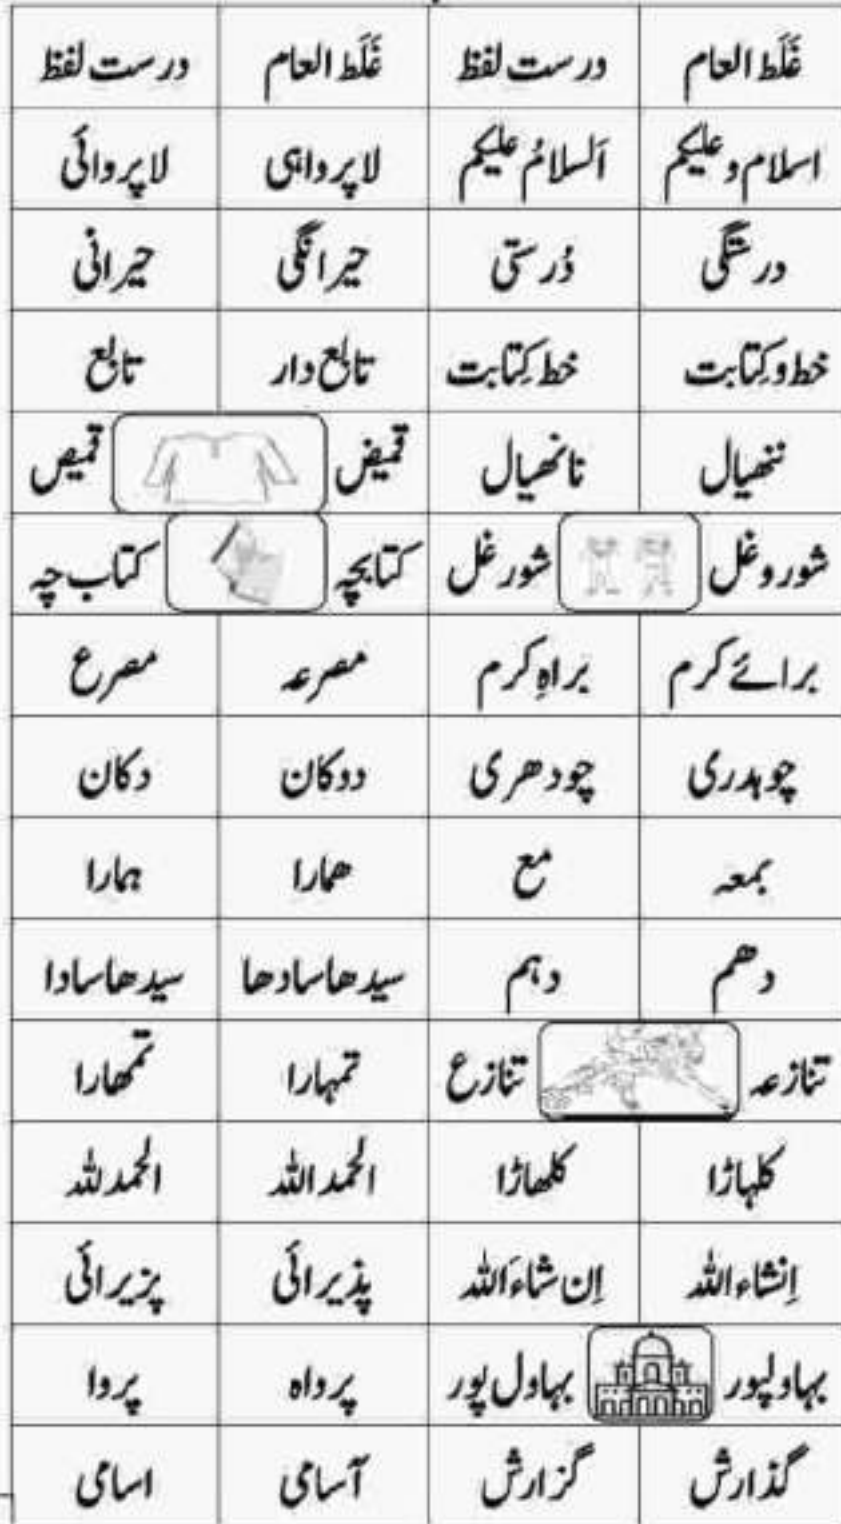 غَلَط العام درست لفظ غَلَط العام درست لفظ
اسلام و علیکم اَلسلامُ علیکم لاپرواہی لاپروائی
درستگی دُرستی حیرانگی حیرانی
خط و کِتابت خط کِتابت تابع دار تابع
ننھیال نانھیال قمیض قمیص
شور و غل شور غل کتابچہ کتاب چہ
برائے کرم براہِ کرم مصرعہ مصرع
چوہدری چودھری دوکان دکان
بمعہ مع ھمارا ہمارا
دھم دہم سیدھا سادھا سیدھا سادا
تنازعہ تنازع تمہارا تمھارا
کلہاڑا کلھاڑا الحمد اللہ الحمدللہ
اِنشاء اللہ اِن شاءَ اللہ پذیرائی پزیرائی
بہاولپور بہاول پور پرواہ پروا
گذارش گزارش آسامی اسامی